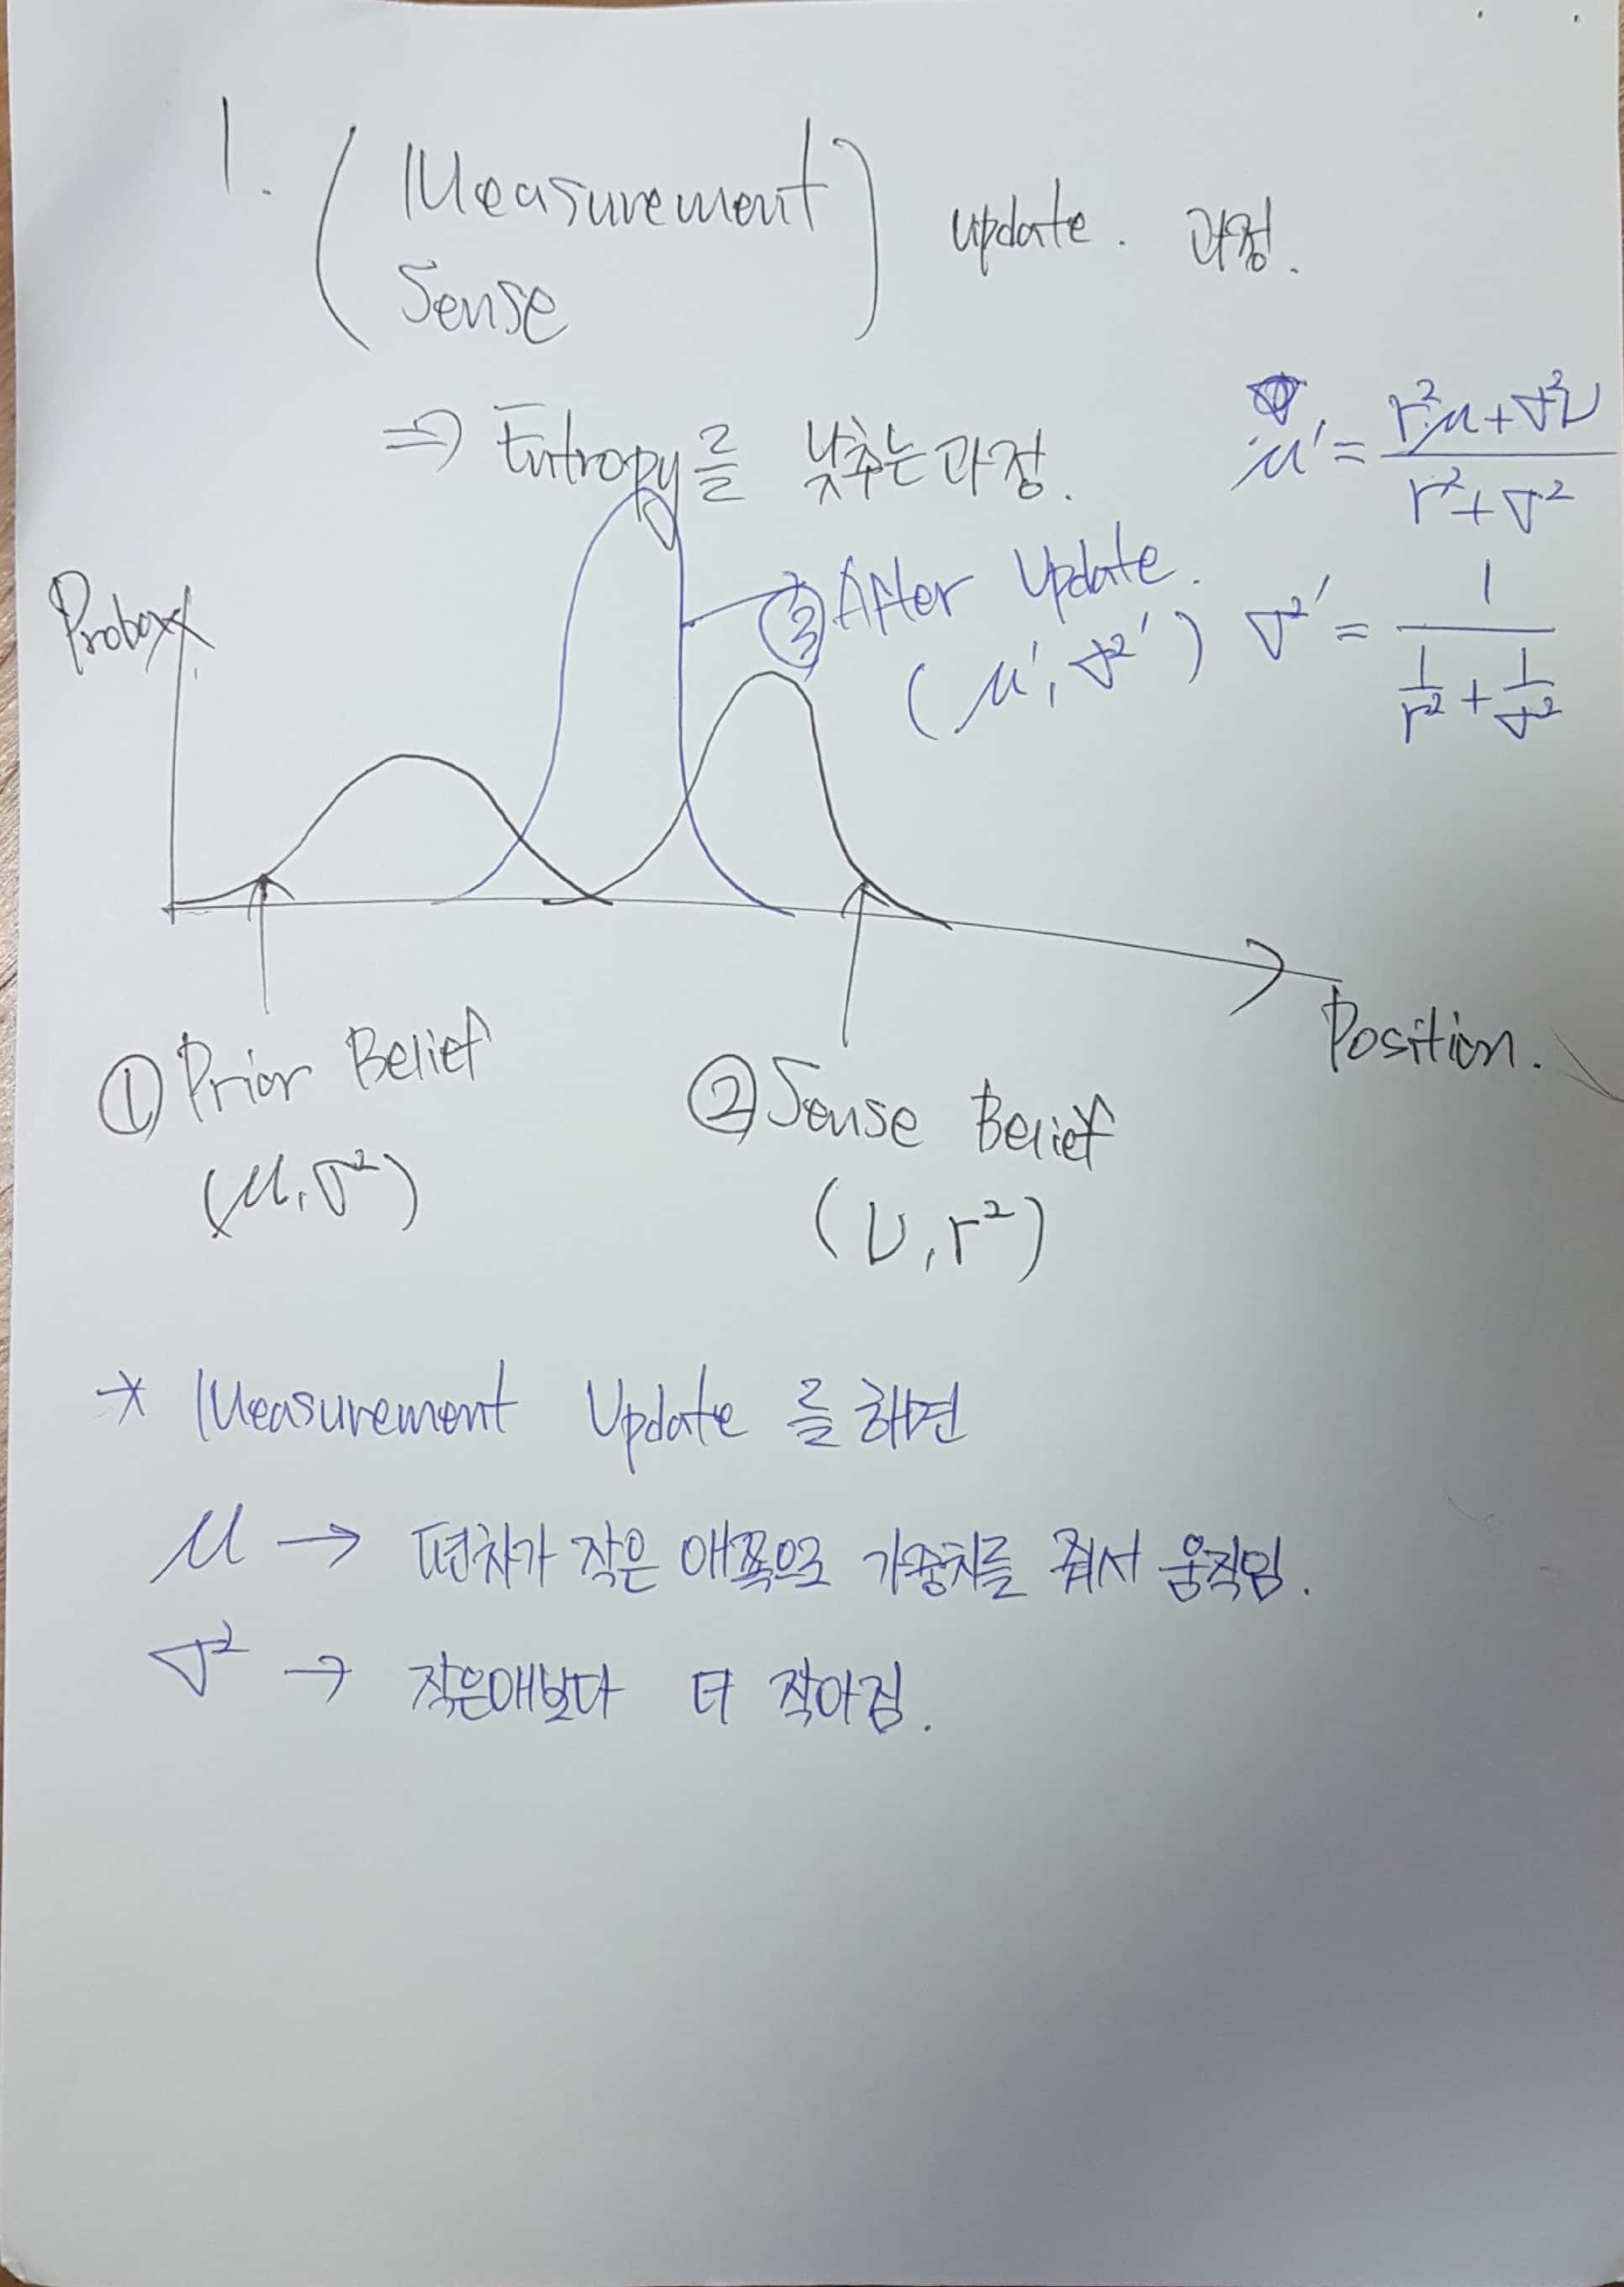 1. (Measurement
Sense) update. 과정.
⇒ Entropy를 낮추는과정.
μ' = (r²μ+σ²ν) / (r²+σ²)
③ After Update.
(μ', σ²')
σ²' = 1 / (1/r² + 1/σ²)
Position.
① Prior Belief
(μ, σ²)
② Sense Belief
(ν, r²)
* Measurement Update 를 하면
μ → 편차가 작은 애쪽으로 가중치를 줘서 움직임.
σ² → 작은애보다 더 작아짐.